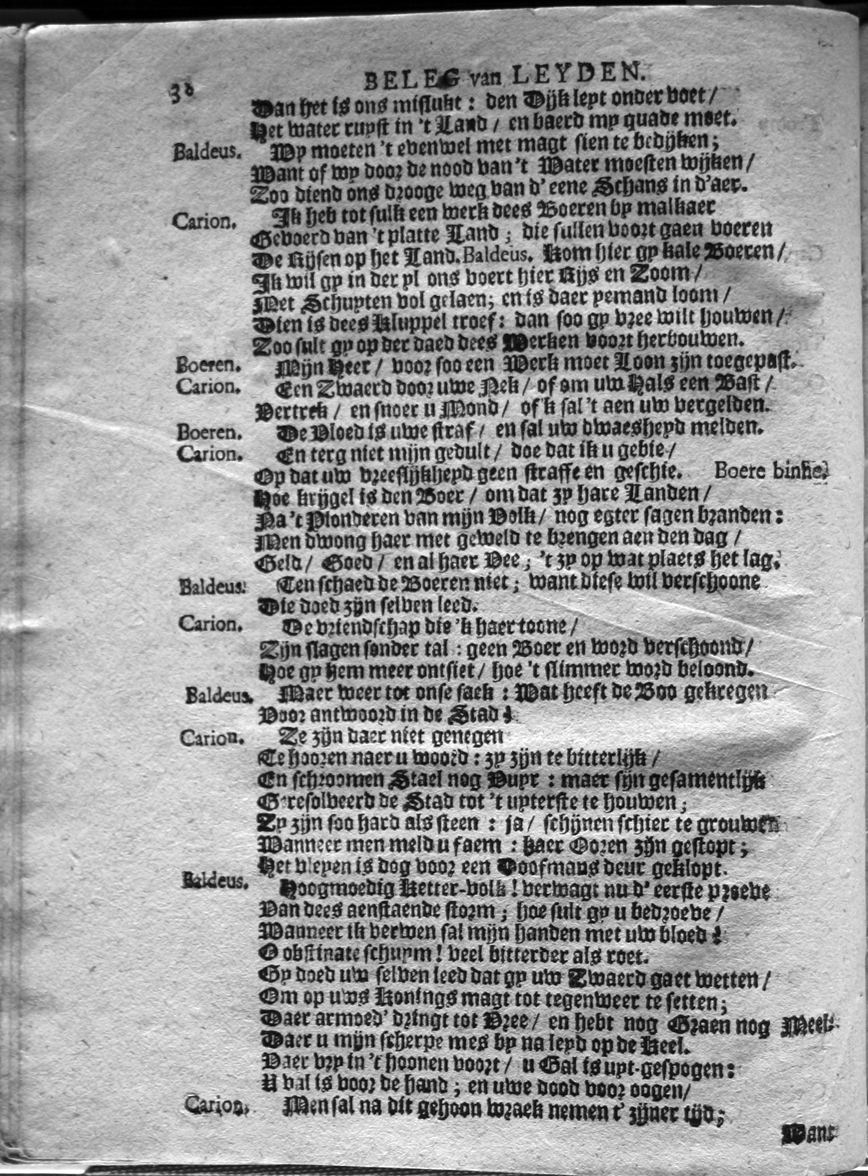 38 BELEG van LEYDEN.
Dan het is ons mislukt : den Dijk leyt onder voet /
Het water ruyst in 't Land / en baerd my quade moet.
Baldeus. Wy moeten 't evenwel met magt sien te bedijken ;
Want of wy door de nood van 't Water moesten wijken /
Zoo diend ons drooge weg van d' eene Schans in d'aer.
Carion. Ik heb tot sulk een werk dees Boeren by malkaer
Gevoerd van 't platte Land ; die sullen voort gaen voeren
De Rijsen op het Land. Baldeus. Kom hier gy kale Boeren /
Ik wil gy in der yl ons voert hier Rijs en Zoom /
Met Schuyten vol gelaen; en is daer yemand loom /
Dien is dees Kluppel troef : dan soo gy vree wilt houwen /
Zoo sult gy op der daed dees Werken voort herbouwen.
Boeren. Mijn Heer / voor soo een Werk moet Loon zijn toegepast.
Carion. Een Zwaerd door uwe Nek / of om uw Hals een Bast /
Vertrek / en snoer u Mond / of k sal 't aen uw vergelden.
Boeren. De Vloed is uwe straf / en sal uw dwaesheyd melden.
Carion. En terg niet mijn gedult / doe dat ik u gebie /
Op dat uw vreeslijkheyd geen straffe en geschie. Boere binne.
Hoe krijgel is den Boer / om dat zy hare Landen /
Na 't Plonderen van mijn Volk / nog egter sagen branden :
Men dwong haer met geweld te brengen aen den dag /
Geld / Goed / en al haer Vee ; 't zy op wat plaets het lag.
Baldeus. Ten schaed de Boeren niet ; want diese wil verschoone
Die doed zijn selven leed.
Carion. De vriendschap die 'k haer toone /
Zijn slagen sonder tal : geen Boer en word verschoond /
Hoe gy hem meer ontsiet / hoe 't slimmer word beloond.
Baldeus. Maer weer tot onse saek : Wat heeft de Boo gekregen
Voor antwoord in de Stad ?
Carion. Ze zijn daer niet genegen
Te hooren naer u woord : zy zijn te bitterlijk /
En schroomen Stael nog Vuyr : maer sijn gesamentlijk
Geresolveerd de Stad tot 't uyterste te houwen ;
Zy zijn soo hard als steen : ja / schijnen schier te grouwen
Wanneer men meld u faem : haer Ooren zijn gestopt ;
Het vleyen is dog voor een Doofmans deur geklopt.
Baldeus. Hoogmoedig Ketter-volk ! verwagt nu d' eerste proeve
Van dees aenstaende storm ; hoe sult gy u bedroeve /
Wanneer ik verwen sal mijn handen met uw bloed !
O obstinate schuym ! veel bitterder als roet.
Gy doed uw selven leed dat gy uw Zwaerd gaet wetten /
Om op uws Konings magt tot tegenweer te setten ;
Daer armoed' dringt tot Vree / en hebt nog Graen nog Meel.
Daer u mijn scherpe mes by na leyd op de Keel.
Vaer vry in 't hoonen voort / u Gal is uyt-gespogen :
U val is voor de hand ; en uwe dood voor oogen /
Carion. Men sal na dit gehoon wraek nemen t' zijner tijd ;
Want